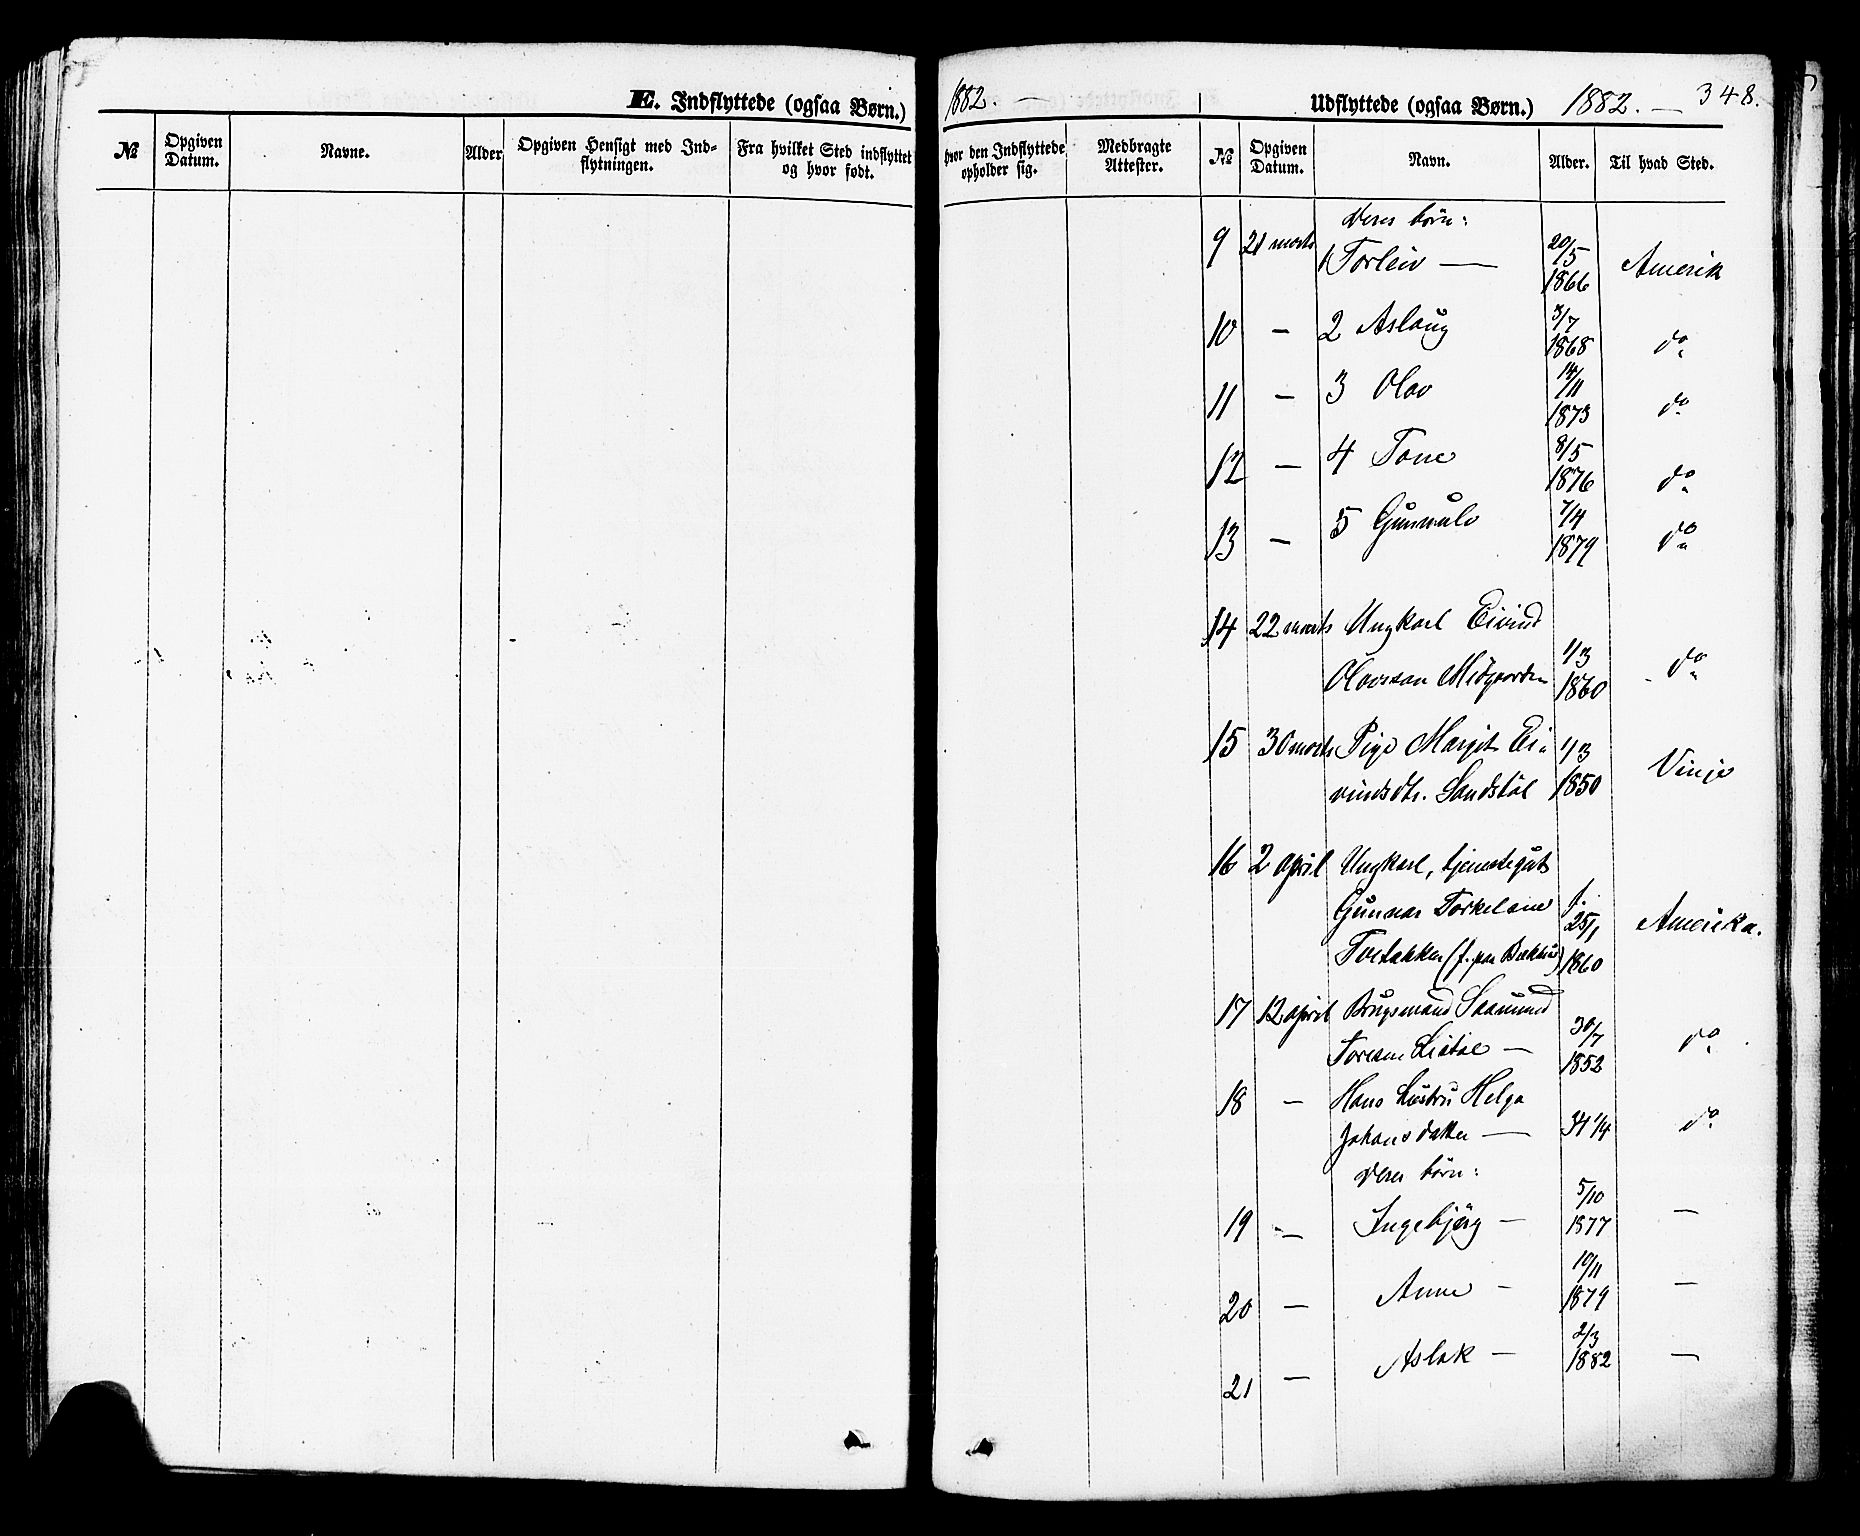 E. Indflyttede (ogsaa Børn.)
№
Opgiven Datum.
Navne.
Alder
Opgiven Hensigt med Ind-
flytningen.
Fra hvilket Sted indflyttet
og hvor født.
1882. —
Udflyttede (ogsaa Børn.) 1882. — 348.
hvor den Indflyttede
opholder sig.
Medbragte
Attester.
№
Opgiven
Datum.
Navn.
Alder.
Til hvad Sted.
Deres børn:
9 21 marts 1 Torleiv — 20/5 1866 Amerik
10 — 2 Aslaug 3/7 1868 do
11 — 3 Olav 14/11 1873 do
12 — 4 Tone 8/5 1876 do
13 — 5 Gunnulv 7/4 1879 do
14 22 marts Ungkarl Eivind
Olavsson Midgaarden 1/3 1860 do
15 30 marts Pige Margit Ei-
vindsdtr. Sandstøl 1/3 1850 Vinje
16 2 april Ungkarl, tjenestegut
Gunnar Torkelsen f. 25/1 Amerika.
(f. paa 1860
17 12 april Brugsmand Saamund
Toresen 30/7 1852 do
18 — Hans Hustru Helga
Johansdatter — 31 1/4 do
Deres børn:
19 — Ingebjørg — 5/10 1877 —
20 — Anne — 10/11 1879 —
21 — Aslak — 2/3 1882 —